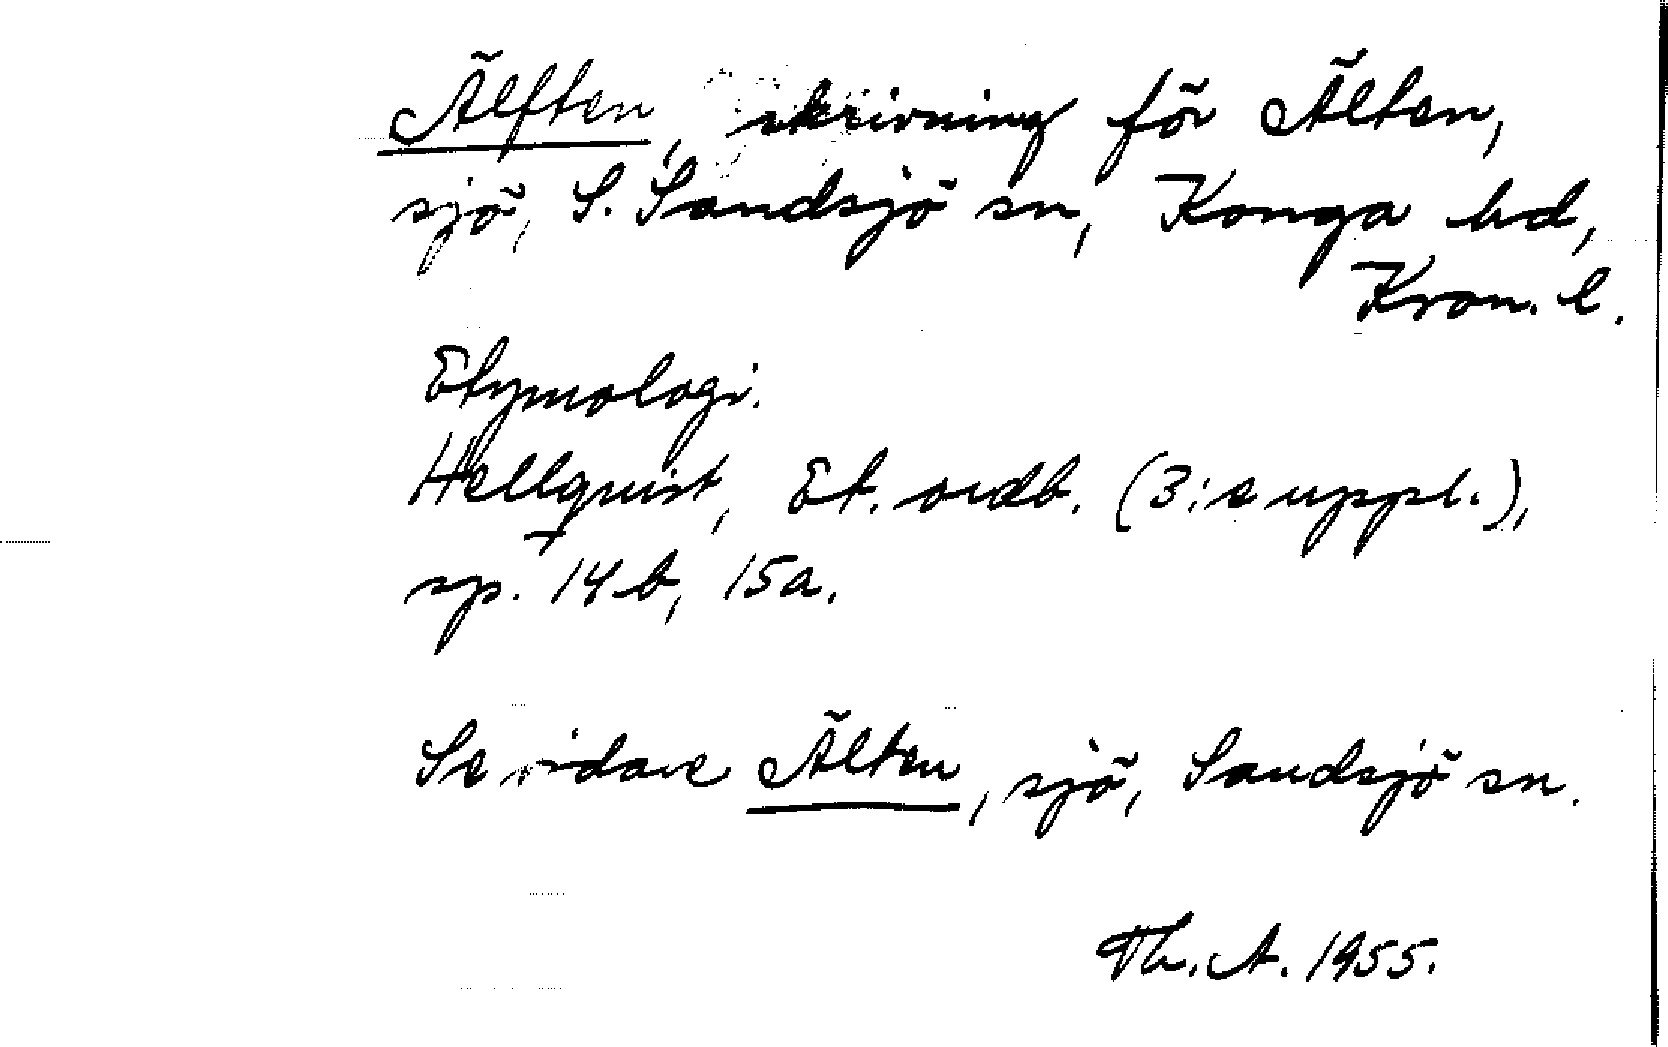 Älften, skrivning för Älten,
sjö, S. Sandsjö sn, Konga hd,
Kron. l.
Etymologi.
Hellquist, Et. ordb. (3:e uppl.),
sp. 14 b, 15a.
Se vidare Älten, sjö, Sandsjö sn.
Th. A. 1955.